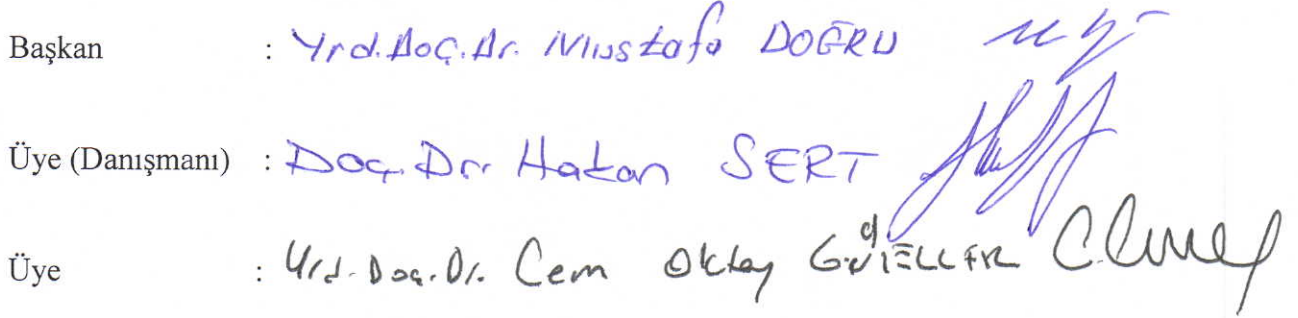 Başkan : Yrd. Doç. Dr. Mustafa DOĞRU
Üye (Danışmanı) : Doç. Dr. Hakan SERT
Üye : Yrd. Doç. Dr. Cem Oktay GÜZELLER